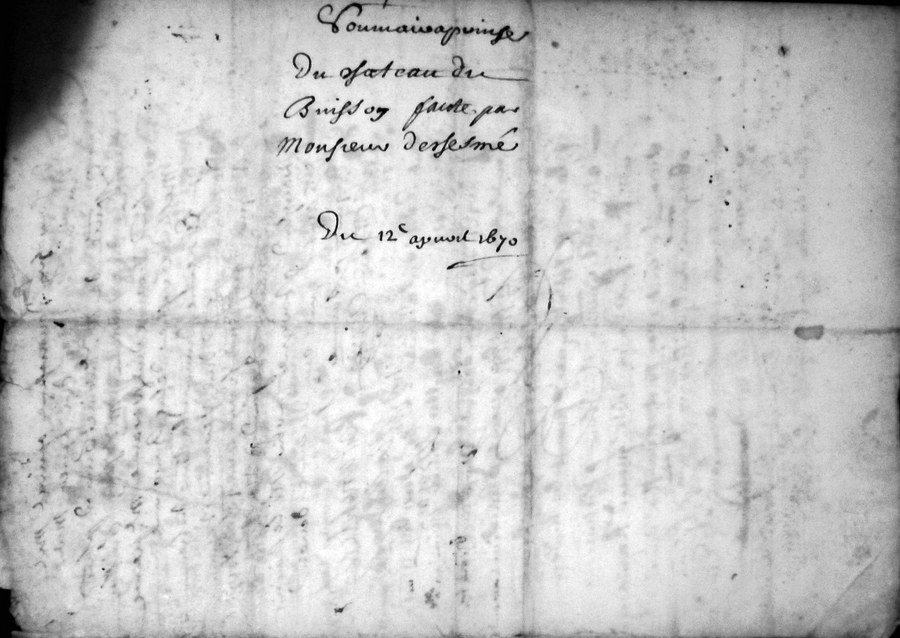 Sommaire aprinse
Du chateau du
Buisson faicte par
Monsieur
Du 12e apvril 1670